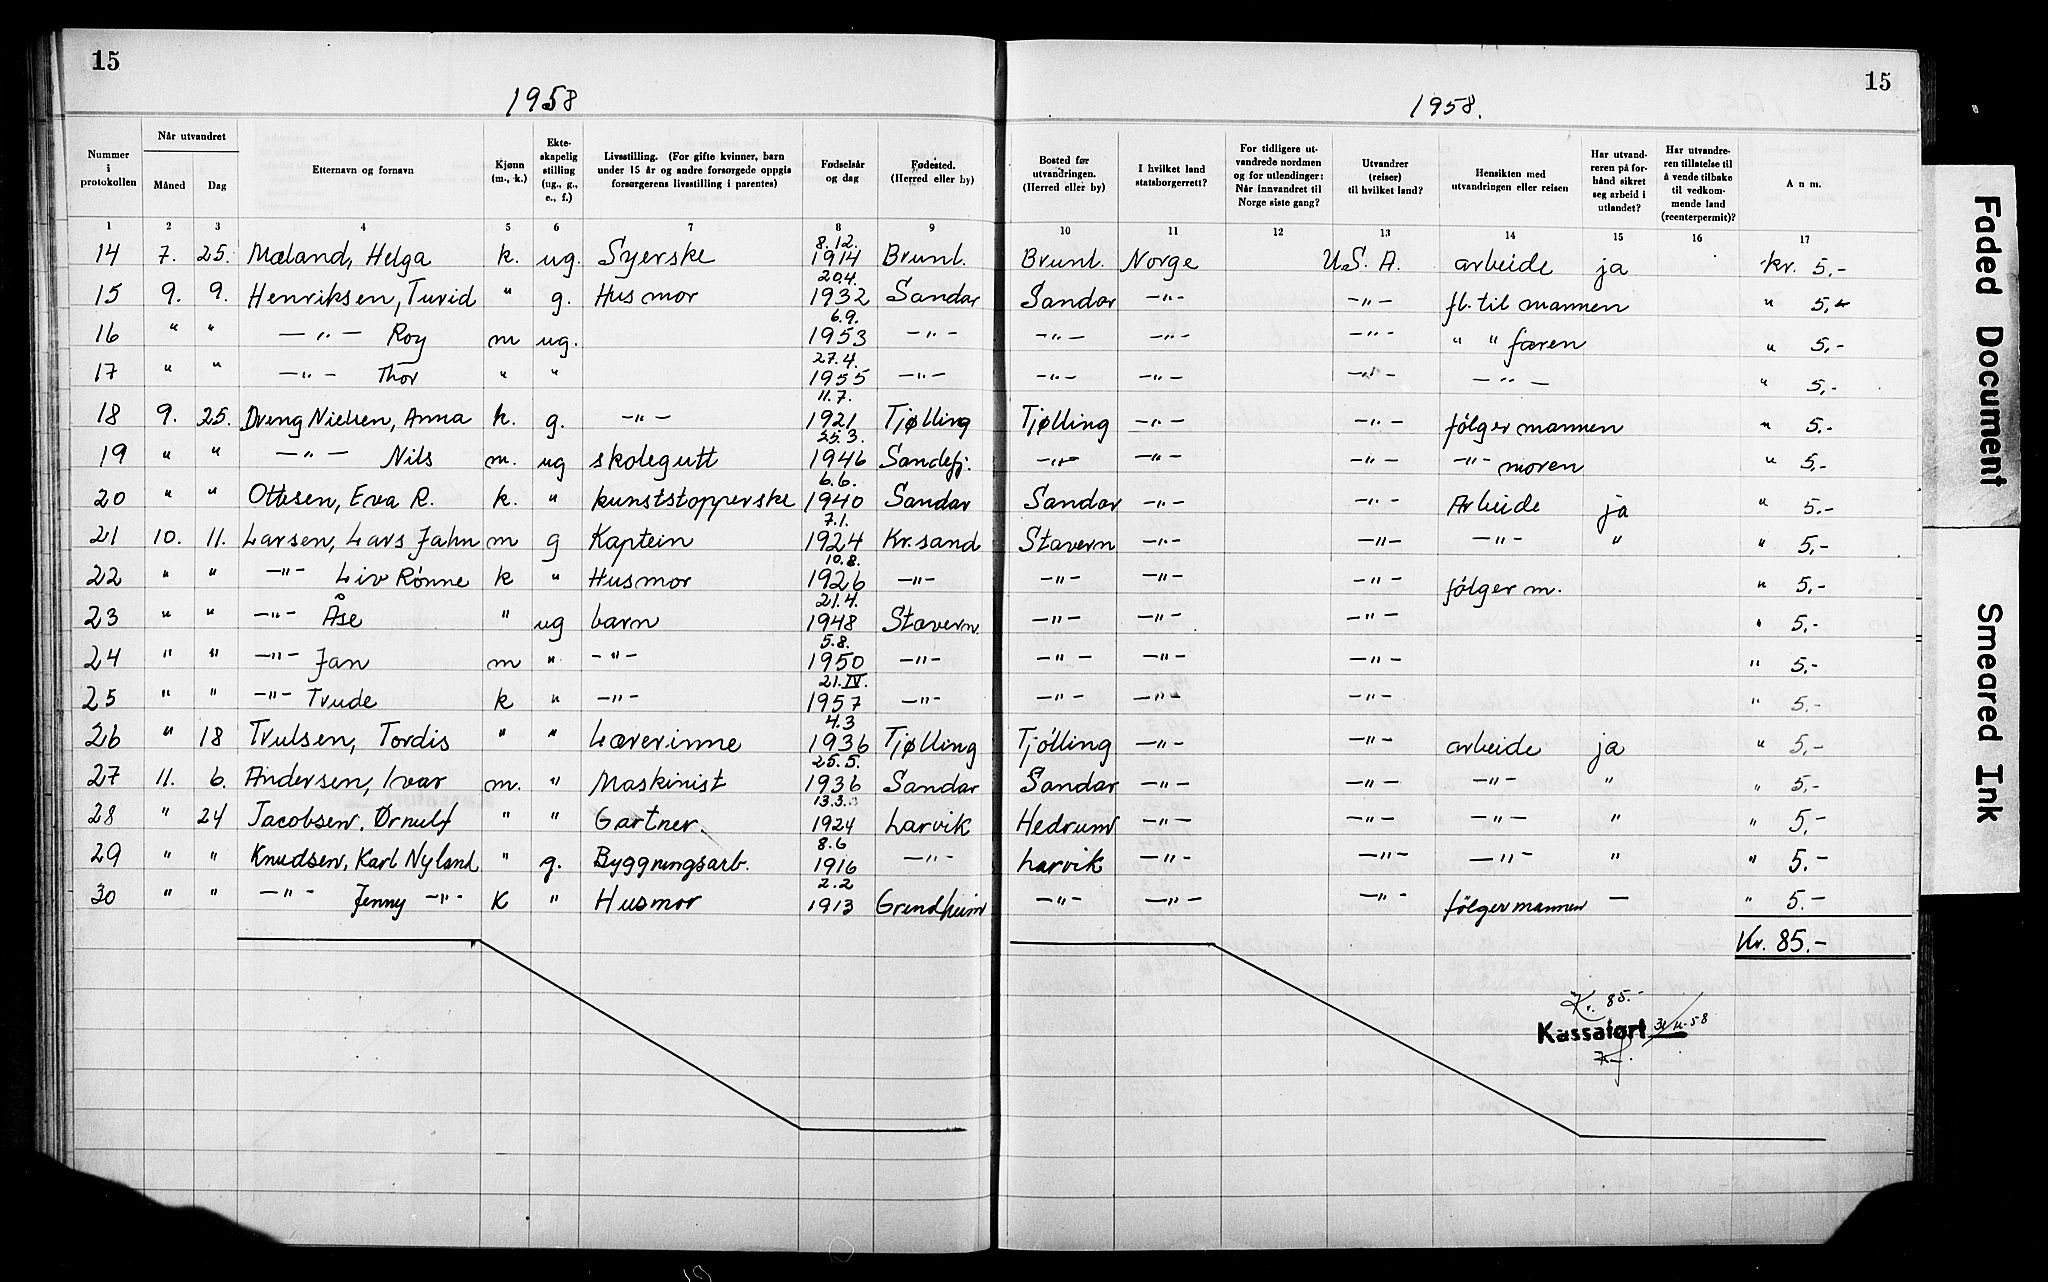 15
1958
15
1958.
Nummer i protokollen | Når utvandret Måned | Dag | Etternavn og fornavn | Kjønn (m., k.) | Ekte-skapelig stilling (ug., g., e., f.) | Livsstilling. (For gifte kvinner, barn under 15 år og andre forsørgede oppgis forsørgerens livsstilling i parentes) | Fødselsår og dag | Fødested. (Herred eller by) | Bosted før utvandringen. (Herred eller by) | I hvilket land statsborgerrett? | For tidligere ut-vandrede nordmen og for utlendinger: Når innvandret til Norge siste gang? | Utvandrer (reiser) til hvilket land? | Hensikten med utvandringen eller reisen | Har utvand-reren på for-hånd sikret seg arbeid i utlandet? | Har utvandre-ren tillatelse til å vende tilbake til vedkom-mende land (reenterpermit)? | Anm.
1 2 3 4 5 6 7 8 9 10 11 12 13 14 15 16 17
14 7. 25. Mæland, Helga k. ug. Syerske 8.12. 1914 Brunl. Brunl. Norge U.S.A. arbeide ja kr. 5,-
15 9. 9. Henriksen, Turid " g. Husmor 20.4. 1932 Sandar Sandar -"- -"- fl. til mannen " 5,-
16 " " -"- Roy m ug. 6.9. 1953 -"- -"- -"- -"- " " faren " 5,-
17 " " -"- Thor " " 27.4. 1955 -"- -"- -"- -"- -"- " 5,-
18 9. 25. Dreng Nielsen, Anna k. g. -"- 11.7. 1921 Tjølling Tjølling -"- -"- følger mannen " 5.-
19 " " -"- Nils m. ug skolegutt 25.3. 1946 Sandefj. -"- -"- -"- -"- moren " 5.-
20 " " Ottesen, Eva R. k. " kunststopperske 6.6. 1940 Sandar Sandar -"- -"- Arbeide ja " 5.-
21 10. 11. Larsen, Lars Jahn m g Kaptein 7.1. 1924 Kr.sand Stavern -"- -"- -"- " " 5,-
22 " " -"- Liv Rønne k " Husmor 10.8. 1926 -"- -"- -"- -"- følger m. " 5,-
23 " " -"- Åse " ug barn 21.4. 1948 Stavern -"- -"- -"- " 5,-
24 " " -"- Jan m " -"- 5.8. 1950 -"- -"- -"- -"- " 5,-
25 " " -"- Trude k " -"- 21.IV. 1957 -"- -"- -"- -"- " 5.-
26 " 18 Trulsen, Tordis " " Lærerinne 4.3 1936 Tjølling Tjølling -"- -"- arbeide ja " 5,-
27 11. 6. Andersen, Ivar m. " Maskinist 25.5. 1936 Sandar Sandar -"- -"- -"- " " 5,-
28 " 24 Jacobsen, Ørnulf " " Gartner. 13.3. 1924 Larvik Hedrum -"- -"- -"- " " 5,-
29 " " Knudsen, Karl Nyland " g. Byggningsarb. 8.6 1916 -"- Larvik -"- -"- -"- " " 5.-
30 " " -"- Jenny -"- K " Husmor 2.2 1913 Grendheim -"- -"- -"- følger mannen - " 5.-
Kr. 85.-
Kr. 85.-
Kassaført
Faded Document
Smeared Ink